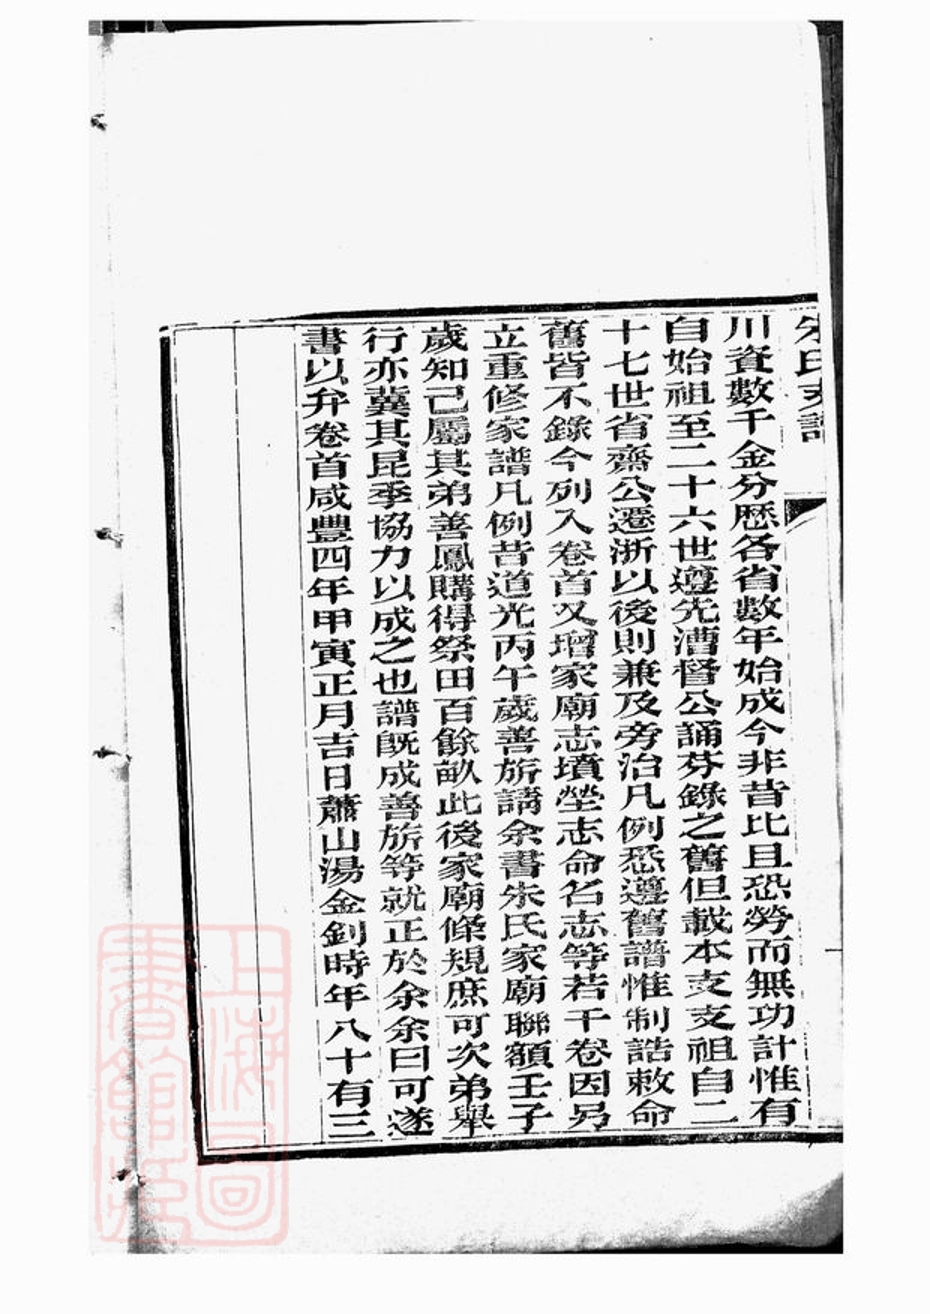 朱氏支譜
川資數千金分歷各省數年始成今非昔比且恐勞而無功計惟有
自始祖至二十六世遵先漕督公誦芬錄之舊但載本支支祖自二
十七世省齋公遷浙以後則兼及旁治凡例悉遵舊譜惟制誥敕命
舊皆不錄今列入卷首又增家廟志墳塋志命名志等若干卷因另
立重修家譜凡例昔道光丙午歲善旂請余書朱氏家廟聯額壬子
歲知己屬其弟善鳳購得祭田百餘畝此後家廟條規庶可次弟舉
行亦冀其昆季協力以成之也譜既成善旂等就正於余余曰可遂
書以弁卷首咸豐四年甲寅正月吉日蕭山湯金釗時年八十有三
上海圖書館藏